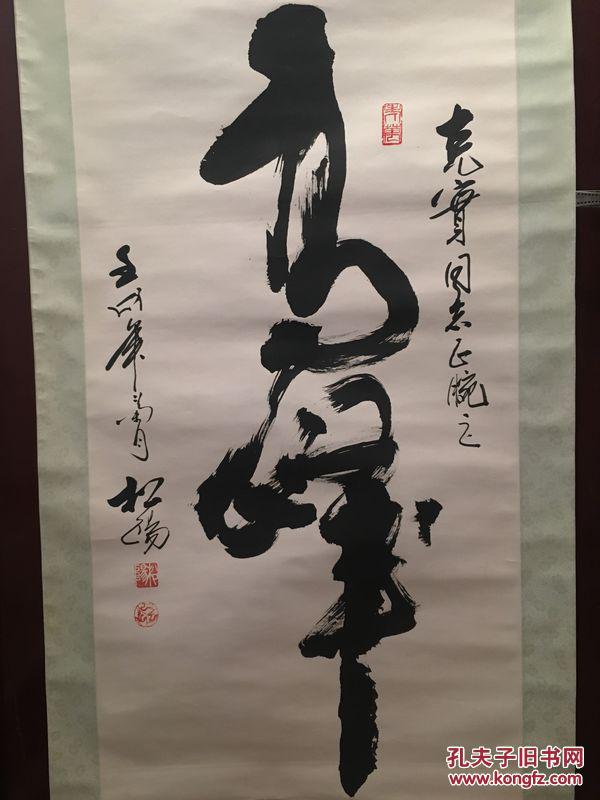 克實同志正腕之
高峰
壬戌年
松陽
孔夫子旧书网
www.kongfz.com